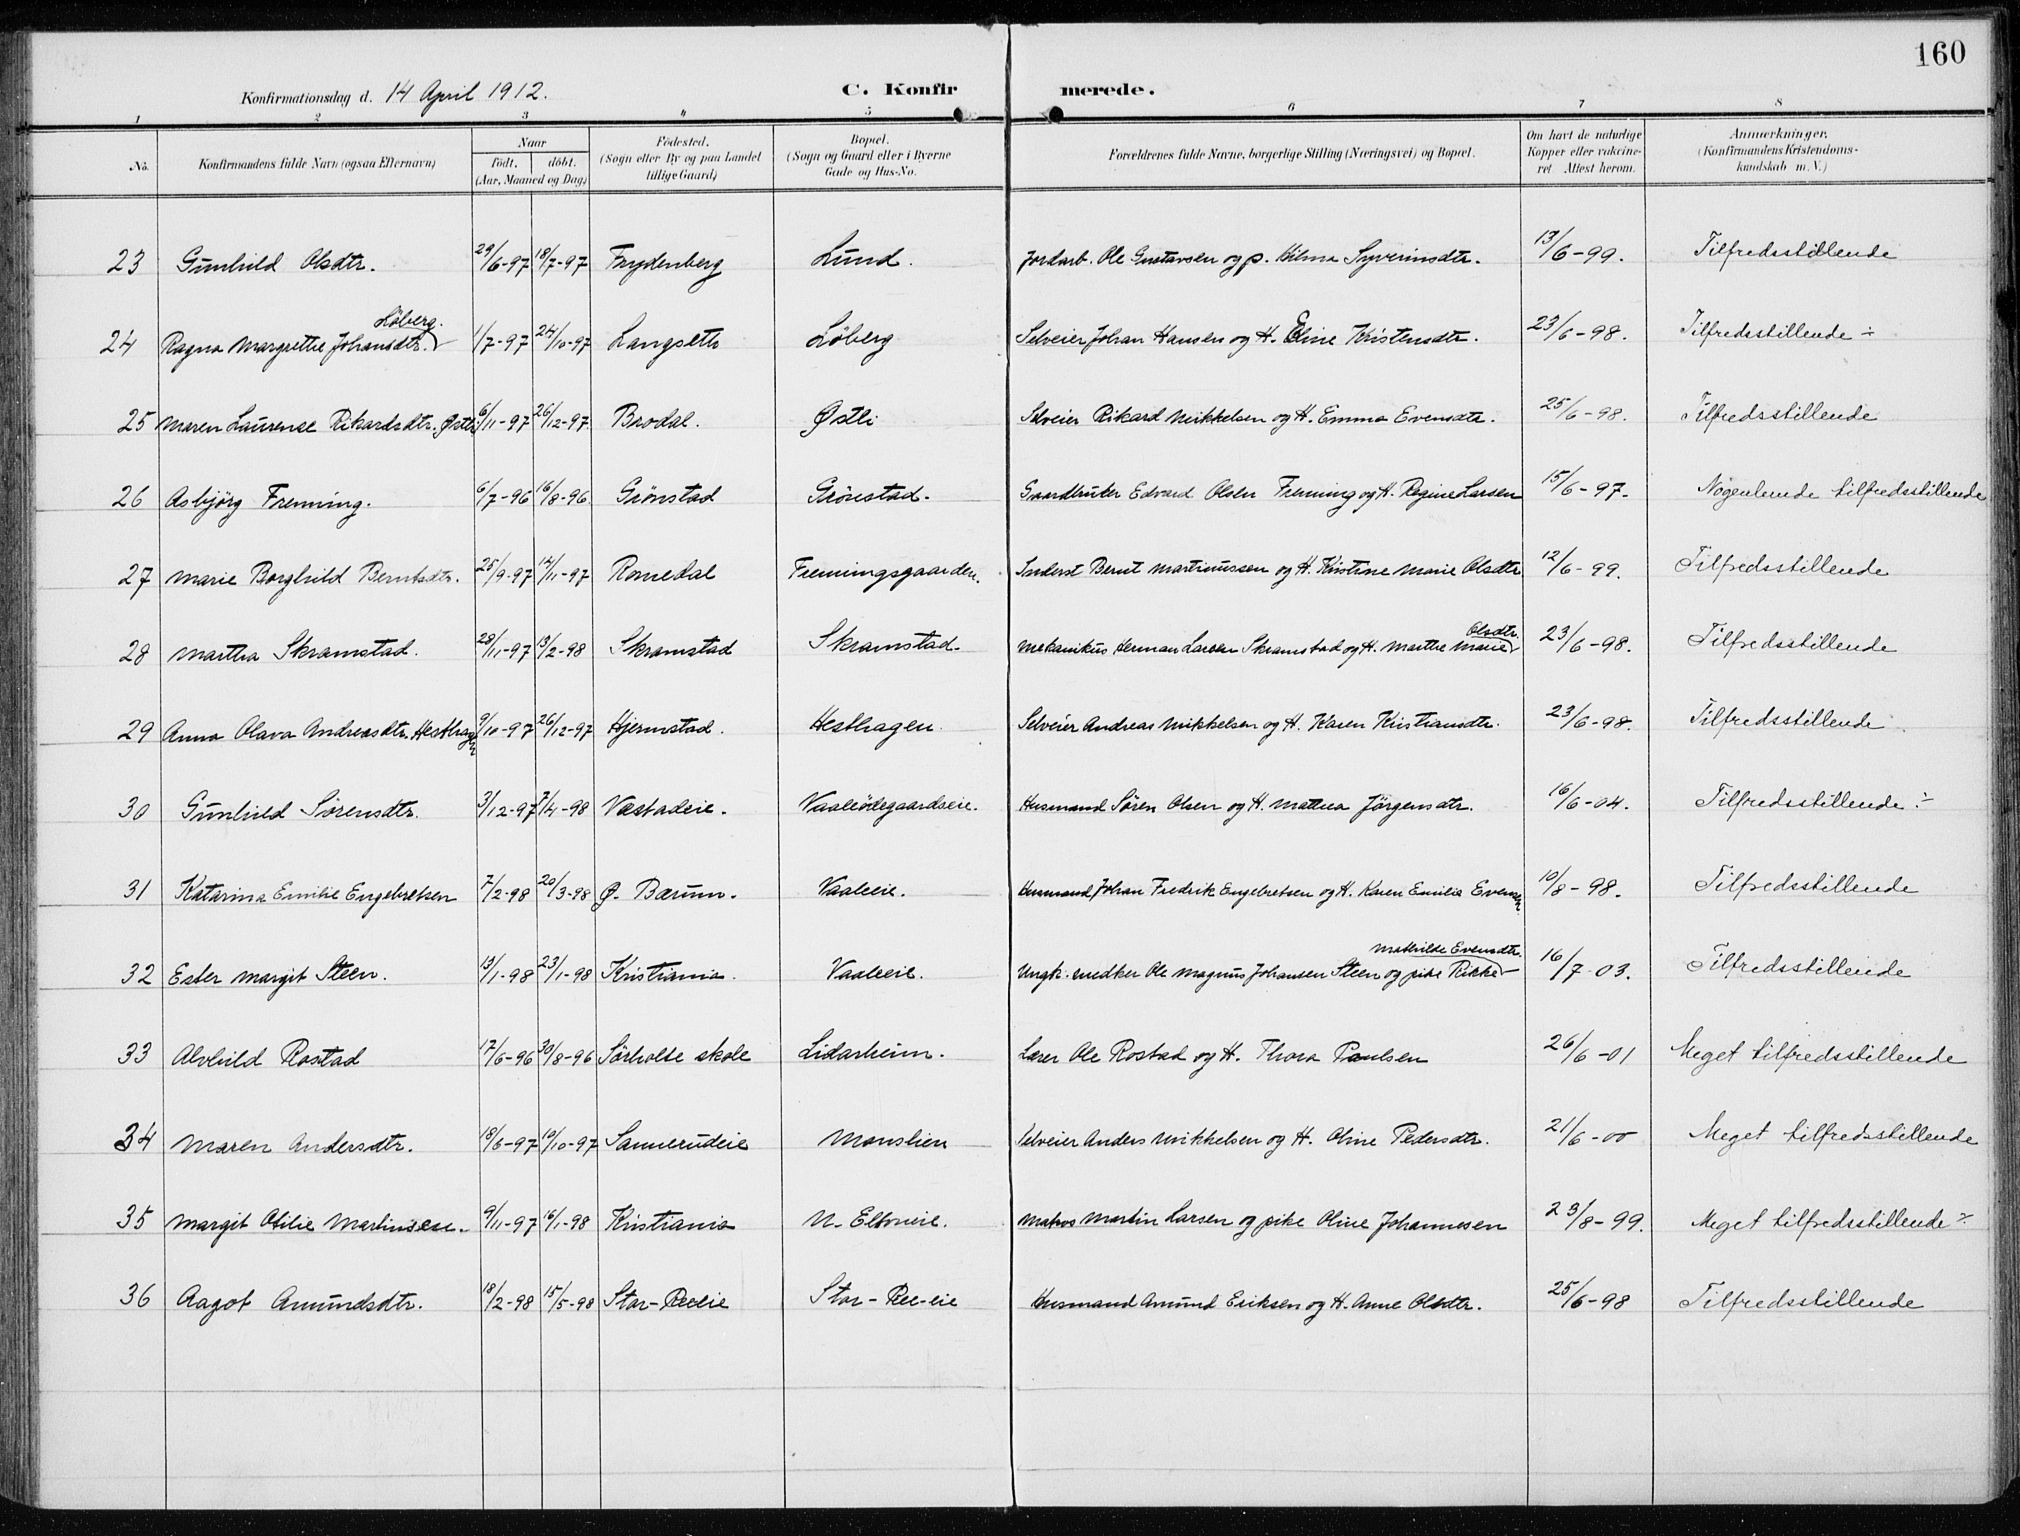 160
Konfirmationsdag d. 14 April 1912.
C. Konfirmerede.
1 2 3 4 5 6 7 8
No. | Konfirmandens fulde Navn (ogsaa Efternavn) | Naar født, døbt. (Aar, Maaned og Dag) | Fødested. (Sogn eller By og paa Landet tillige Gaard) | Bopæl. (Sogn og Gaard eller i Byerne Gade og Hus-No. | Forældrenes fulde Navne, borgerlige Stilling (Næringsvei) og Bopæl. | Om havt de naturlige Kopper eller vakcineret Attest herom. | Anmærkninger. (Konfirmandens Kristendomskundskab m. V.)
23 Gunhild Olsdtr. 29/6-97 18/7-97 Frydenberg Lund. Jordarb. Ole Gustavsen og p. Hilma Syverinsdtr. 13/6-99. Tilfredsstillende
24 Ragna Margrethe Johansdtr. Löberg. 1/7-97 24/10-97 Langseth Löberg Selveier Johan Hansen og H. Eline Kristensdtr. 23/6-98. Tilfredsstillende ÷
25 Maren Laurense Rikardsdtr. Østli 6/11-97 26/12-97 Brodal. Østli Selveier Rikard Mikkelsen og H. Emma Evensdtr. 25/6-98. Tilfredsstillende
26 Asbjörg Frenning. 6/7-96 16/8-96 Grönstad Grönstad. Gaardbruker Edvard Olsen Frenning og H. Regine Larsen 15/6-97. Nogenlunde tilfredsstillende
27 Marie Borghild Berntsdtr. 25/9-97 14/11-97 Romedal Frenningsgaarden. Inderst Bernt Martinussen og H. Kristine Marie Olsdtr 12/6-99. Tilfredsstillende
28 Martha Skramstad. 28/11-97 13/2-98 Skramstad Skramstad. Mekanikus Herman Larsen Skramstad og H. Marthe Marie Olsdtr. 23/6-98. Tilfredsstillende
29 Anna Olava Andreasdtr. Hesthagen 9/10-97 26/12-97 Hjermstad. Hesthagen. Selveier Andreas Mikkelsen og H. Karen Kristiansdtr. 23/6-98. Tilfredsstillende
30 Gunhild Sörensdtr. 3/12-97 7/4-98 Væstadeie. Vaaleödegaardseie. Husmand Sören Olsen og H. Mathea Jörgensdtr. 16/6-04. Tilfredsstillende ÷
31 Katarina Emilie Engebretsen 7/2-98 20/3-98 Ø. Bærum. Vaaleeie. Husmand Johan Fredrik Engebretsen og H. Karen Emilia Evensen 10/8-98. Tilfredsstillende
32 Ester Margit Steen. 13/1-98 23/1-98 Kristiania. Vaaleeie. Ungk. snedker Ole Magnus Johansen Steen og pike Rikke Mathilde Evensdtr. 16/7 03. Tilfredsstillende
33 Alvhild Rostad 17/6-96 30/8-96 Sörholte skole Lidarheim. Lærer Ole Rostad og H. Thora Paulsen 26/6-01 Meget tilfredsstillende
34 Maren Andersdtr. 18/6-97 10/10-97 Sannerudeie Monslien Selveier Anders Mikkelsen og H. Oline Pedersdtr. 21/6-00 Meget tilfredsstillende
35 Margit Otilie Martinsen. 9/11-97 16/1-98 Kristiania N. Eltoneie. Matros Martin Larsen og pike Oline Johannesen 23/8-99. Meget tilfredsstillende ÷
36 Aagot Amundsdtr. 18/2-98 15/5-98 Stor-Reeeie Stor-Ree-eie Husmand Amund Eriksen og H. Anne Olsdtr. 25/6-98 Tilfredsstillende